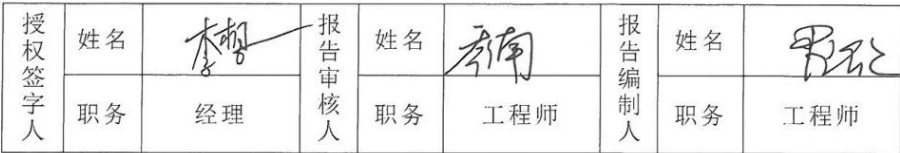 授权签字人 姓名 报告审核人 姓名 报告编制人 姓名
职务 经理 职务 工程师 职务 工程师